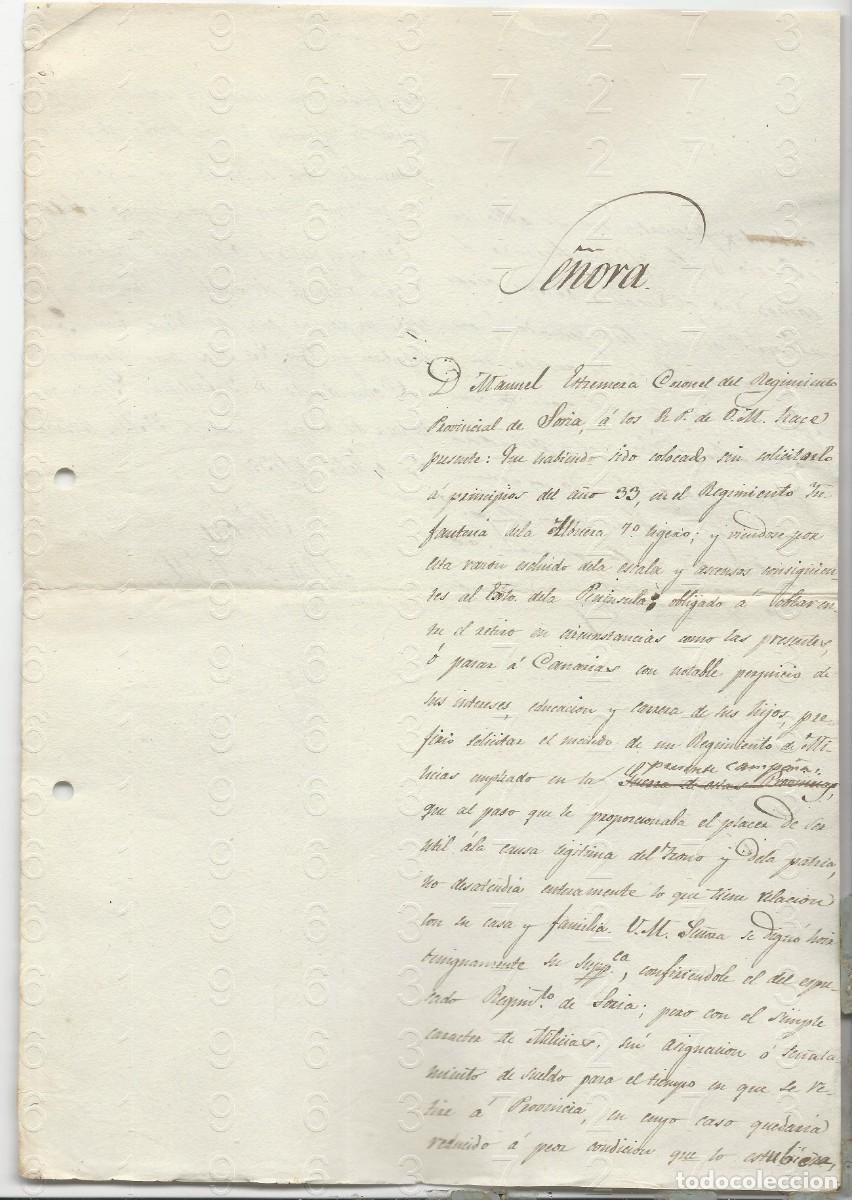 Señora.
D. Manuel Estremera Coronel del Regimiento
Provincial de Soria, á los R. P. de V. M. hace
presente: Que habiendo sido colocado sin solicitarlo
á principios del año 33, en el Regimiento In-
fanteria dela Albuera 7º ligero; y viendose por
esta razon escluido dela escala y ascensos consiguien-
tes al Exto. dela Peninsula; obligado á
el retiro en circunstancias como las presentes,
ó pasar á Canarias con notable perjuicio de
sus intereses, educacion y carrera de sus hijos, pre-
firio solicitar el mando de un Regimiento de Mi-
licias empleado en la presente campaña;
Guerra de estas Provincias,
que al paso que le proporcionaba el placer de ser
util ála causa legitima del trono y dela patria,
no desatendia enteramente lo que tiene relacion
con su casa y familia. V. M. Señora se dignó
benignamente su supp.ca, confiriendole el del espre-
sado Regim.to de Soria; pero con el simple
caracter de Milicias, sin asignacion ó señala-
miento de sueldo para el tiempo en que se re-
tire á Provincia, en cuyo caso quedaria
reducido á peor condicion que lo estubiera,
todocoleccion